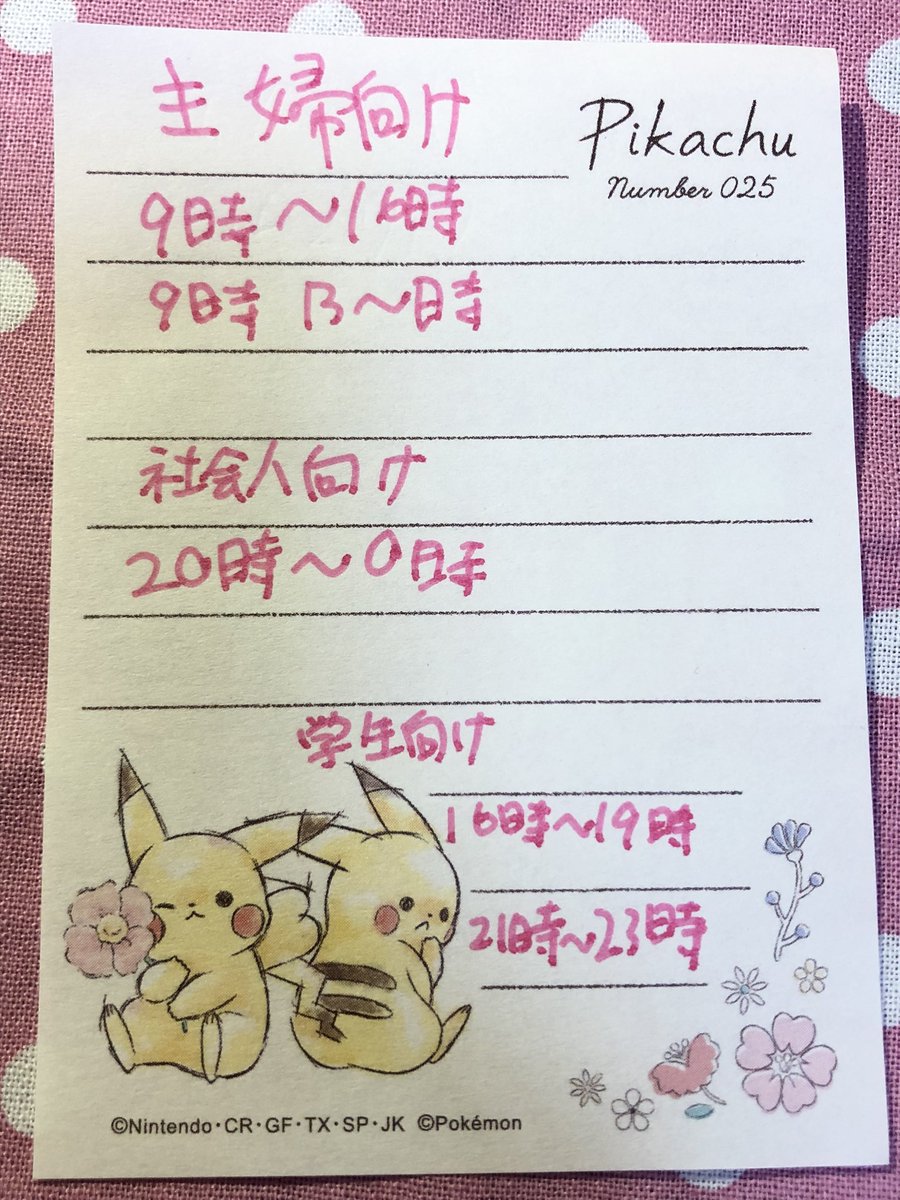 主婦向け
Pikachu
Number 025
9時〜16時
9時 13〜時
社会人向け
20時〜0時
学生向け
16時〜19時
21時〜23時
©Nintendo・CR・GF・TX・SP・JK ©Pokémon